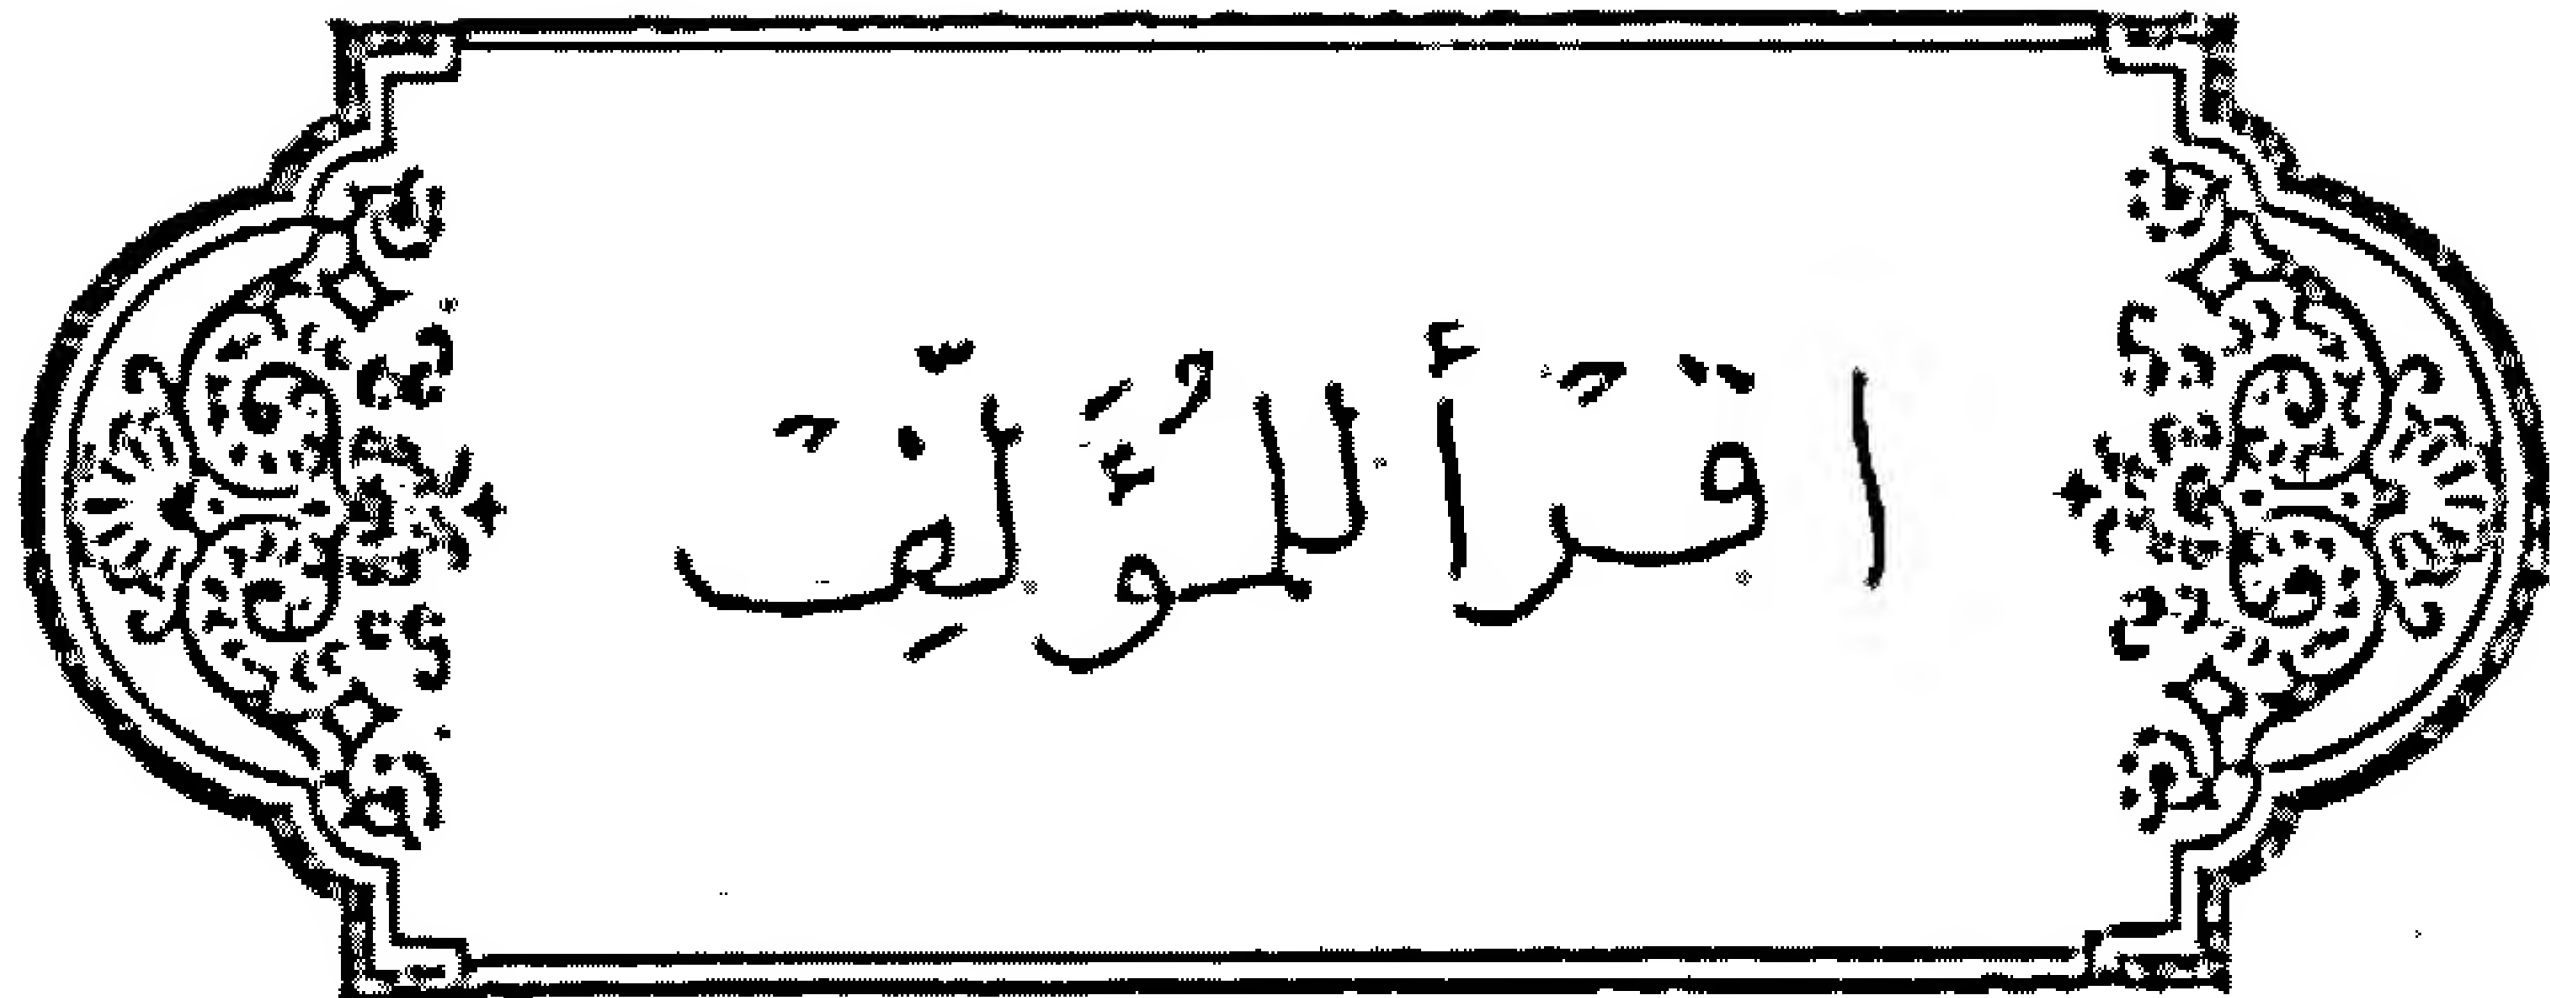 اقْرَأْ لِلمُؤَلِّفْ